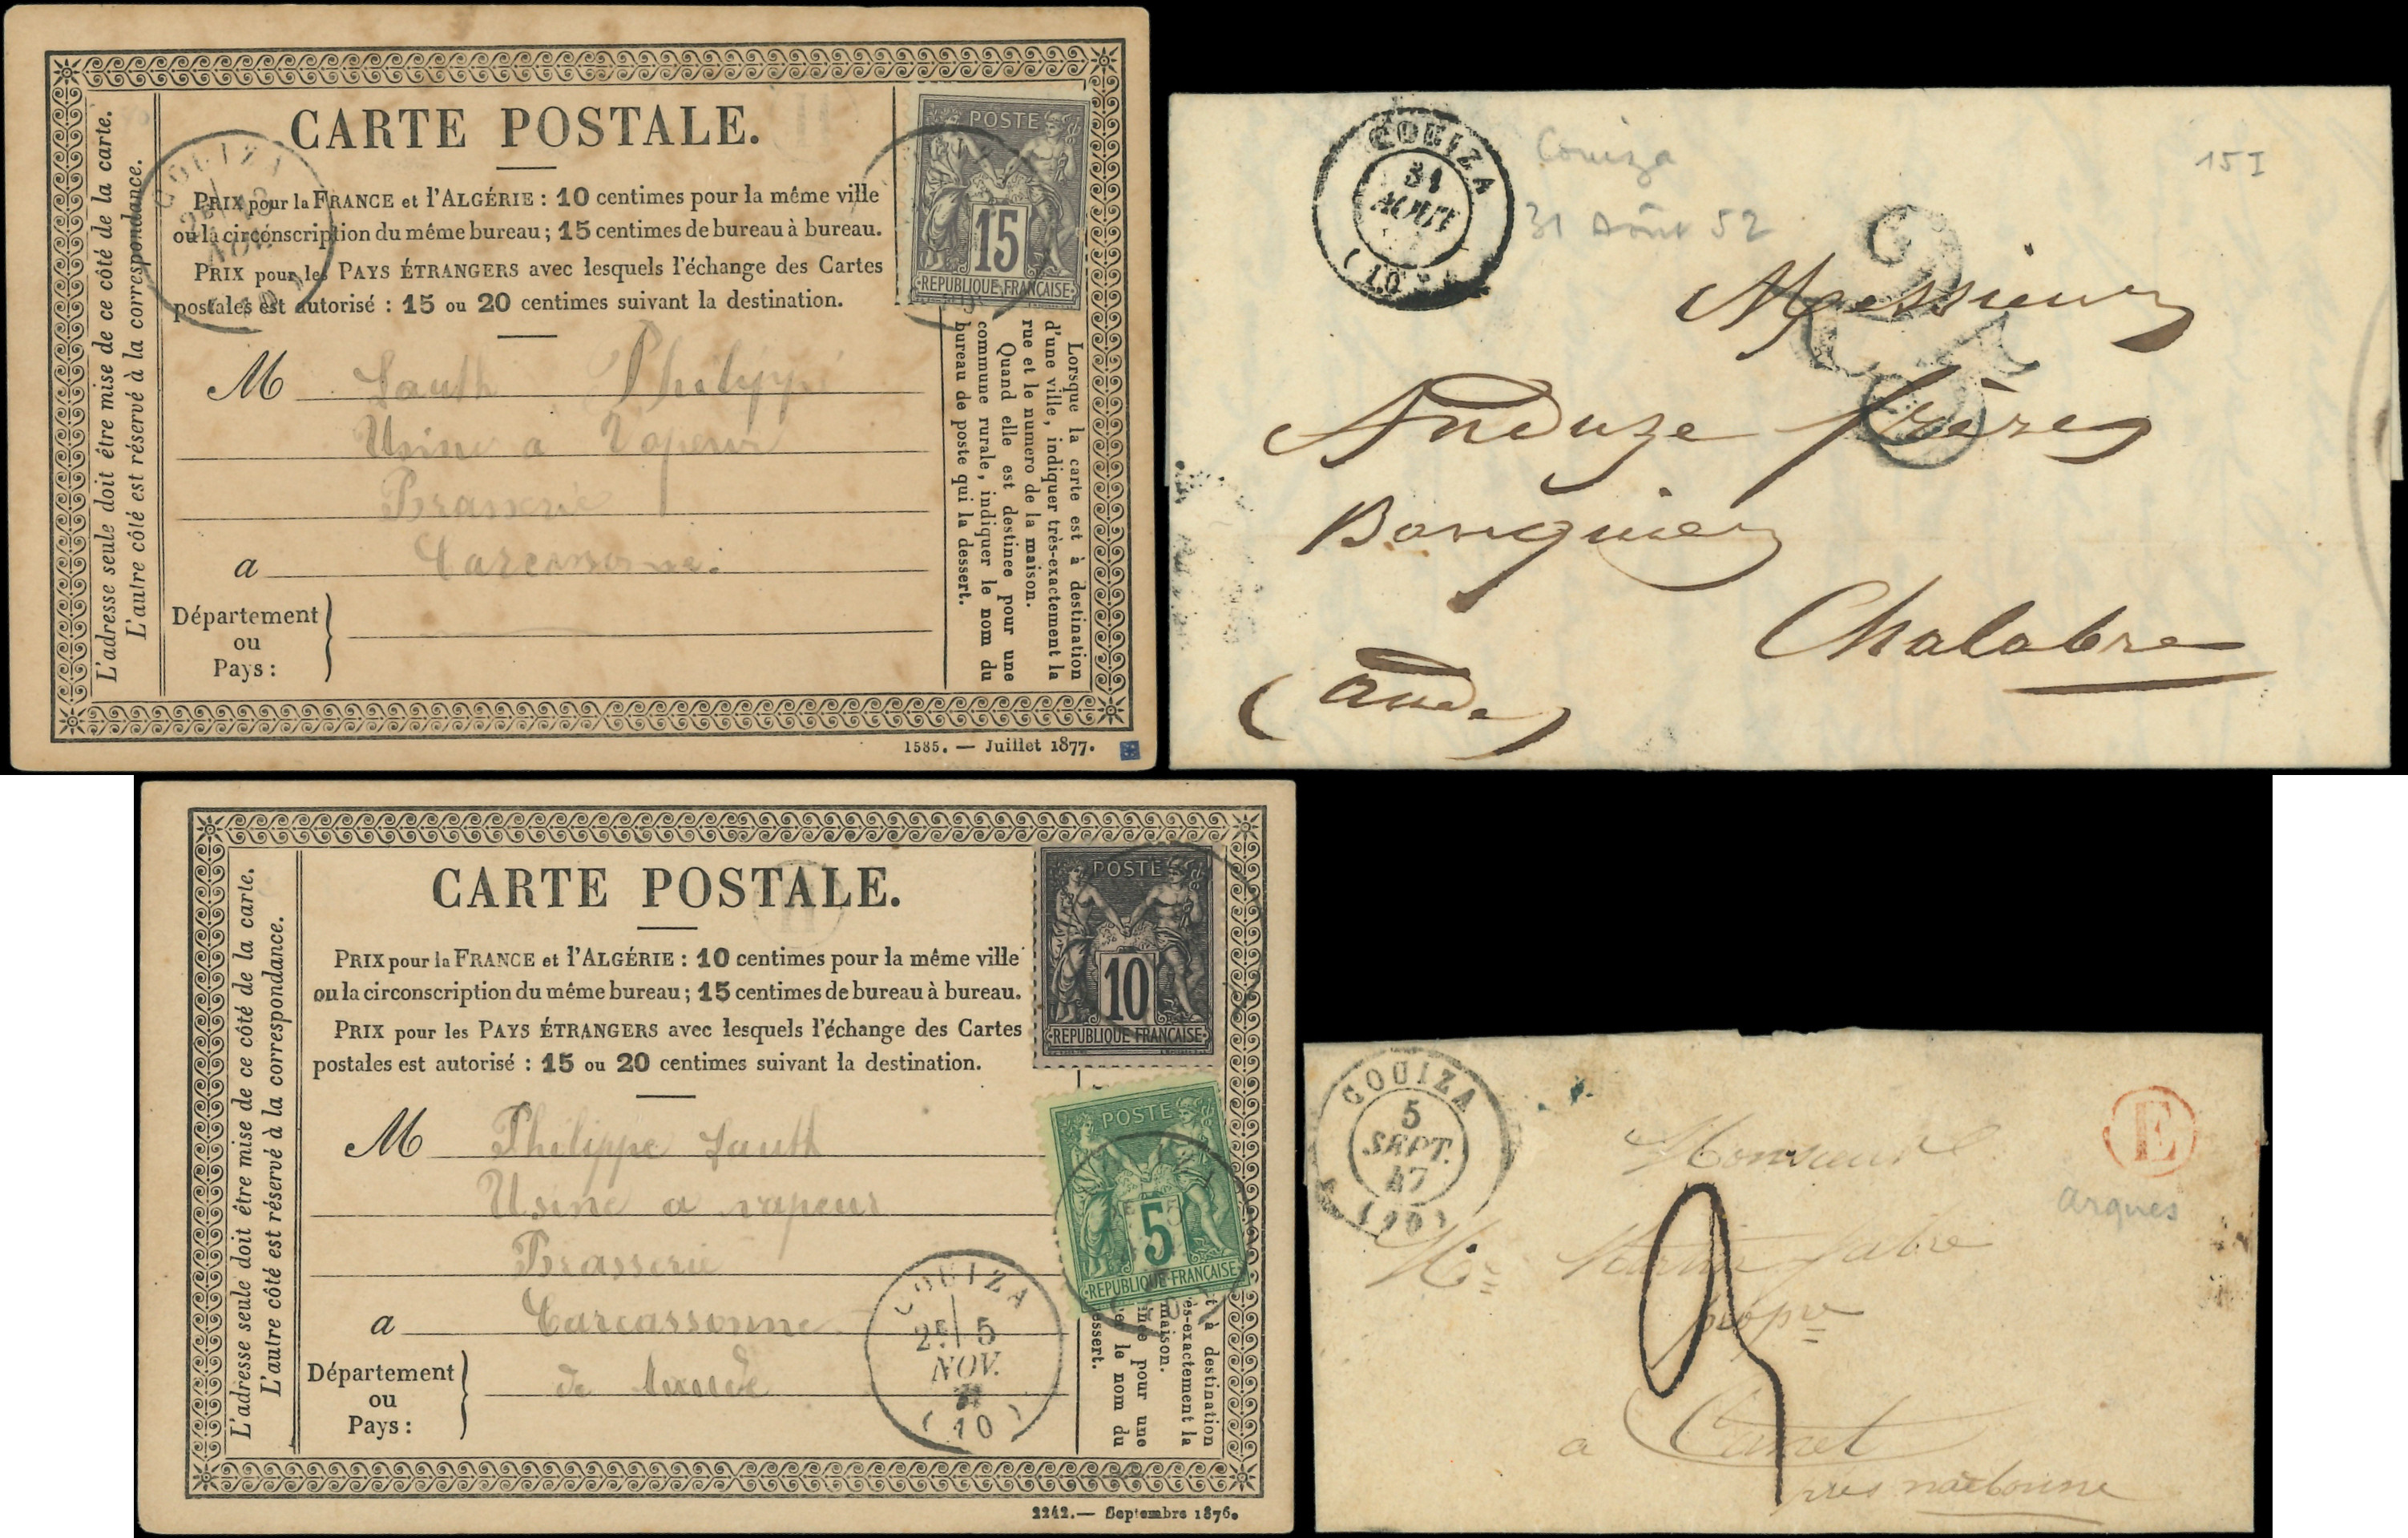 CARTE POSTALE.
PRIX pour la FRANCE et l'ALGÉRIE : 10 centimes pour la même ville
ou la circonscription du même bureau ; 15 centimes de bureau à bureau.
PRIX pour les PAYS ÉTRANGERS avec lesquels l'échange des Cartes
postales est autorisé : 15 ou 20 centimes suivant la destination.
L'adresse seule doit être mise de ce côté de la carte.
L'autre côté est réservé à la correspondance.
COUIZA
NOV.
POSTE
15
REPUBLIQUE FRANÇAISE
Lorsque la carte est à destination
d'une ville, indiquer très-exactement la
rue et le numéro de la maison.
Quand elle est destinée pour une
commune rurale, indiquer le nom du
bureau de poste qui la dessert.
M Sauth Philippe
Usine a Vapeur
Brasserie
a Carcassonne.
Département
ou
Pays :
1585. — Juillet 1877.
COUIZA
31
AOUT
(10)
Couiza
31 Août 52
15 I
25
Messieurs
Anduze frères
Banquiers
Chalabre
(Aude)
CARTE POSTALE.
PRIX pour la FRANCE et l'ALGÉRIE : 10 centimes pour la même ville
ou la circonscription du même bureau ; 15 centimes de bureau à bureau.
PRIX pour les PAYS ÉTRANGERS avec lesquels l'échange des Cartes
postales est autorisé : 15 ou 20 centimes suivant la destination.
L'adresse seule doit être mise de ce côté de la carte.
L'autre côté est réservé à la correspondance.
POSTE
10
REPUBLIQUE FRANÇAISE
POSTE
5
REPUBLIQUE FRANÇAISE
M Philippe Sauth
Usine a vapeur
Brasserie
a Carcassonne
Département
ou
Pays :
de Laude
COUIZA
2E 5
NOV.
(10)
t à destination
ès-exactement la
maison.
inée pour une
er le nom du
essert.
2242. — Septembre 1876.
COUIZA
5
SEPT.
47
(10)
E
arques
Monsieur
propre
a Canet
près narbonne